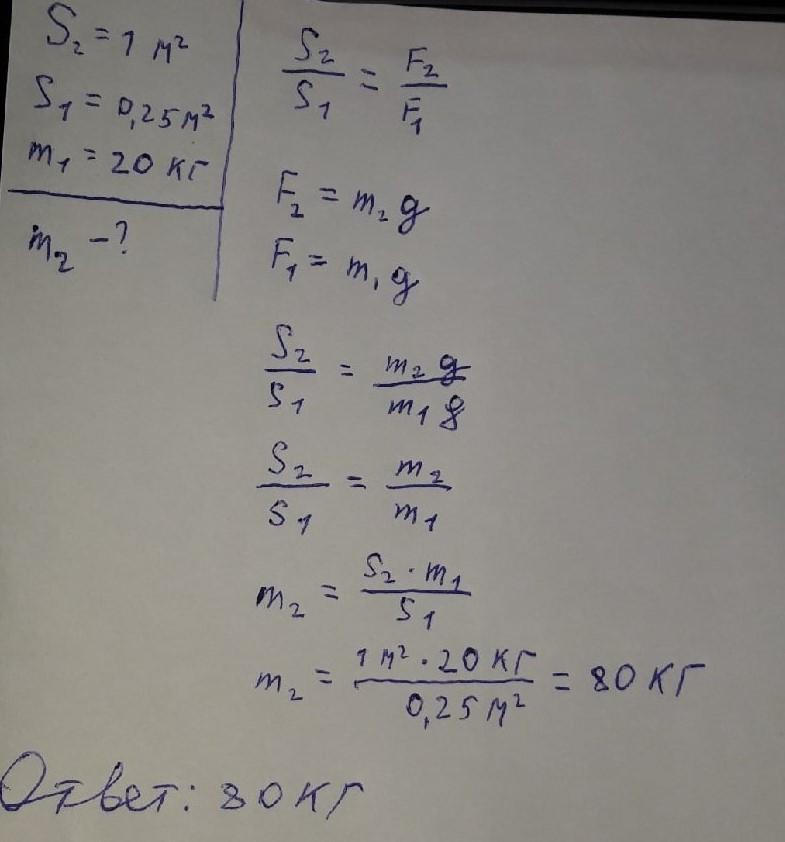 S₂ = 1 м²
S₁ = 0,25 м²
m₁ = 20 кг
m₂ - ?
S₂/S₁ = F₂/F₁
F₂ = m₂ g
F₁ = m₁ g
S₂/S₁ = m₂ g/m₁ g
S₂/S₁ = m₂/m₁
m₂ = S₂ · m₁/S₁
m₂ = 1 м² · 20 кг/0,25 м² = 80 кг
Ответ: 80 кг